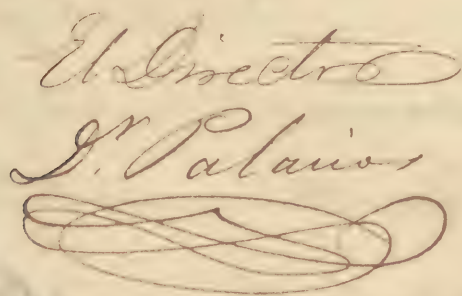 El Director
Dr. Palacios